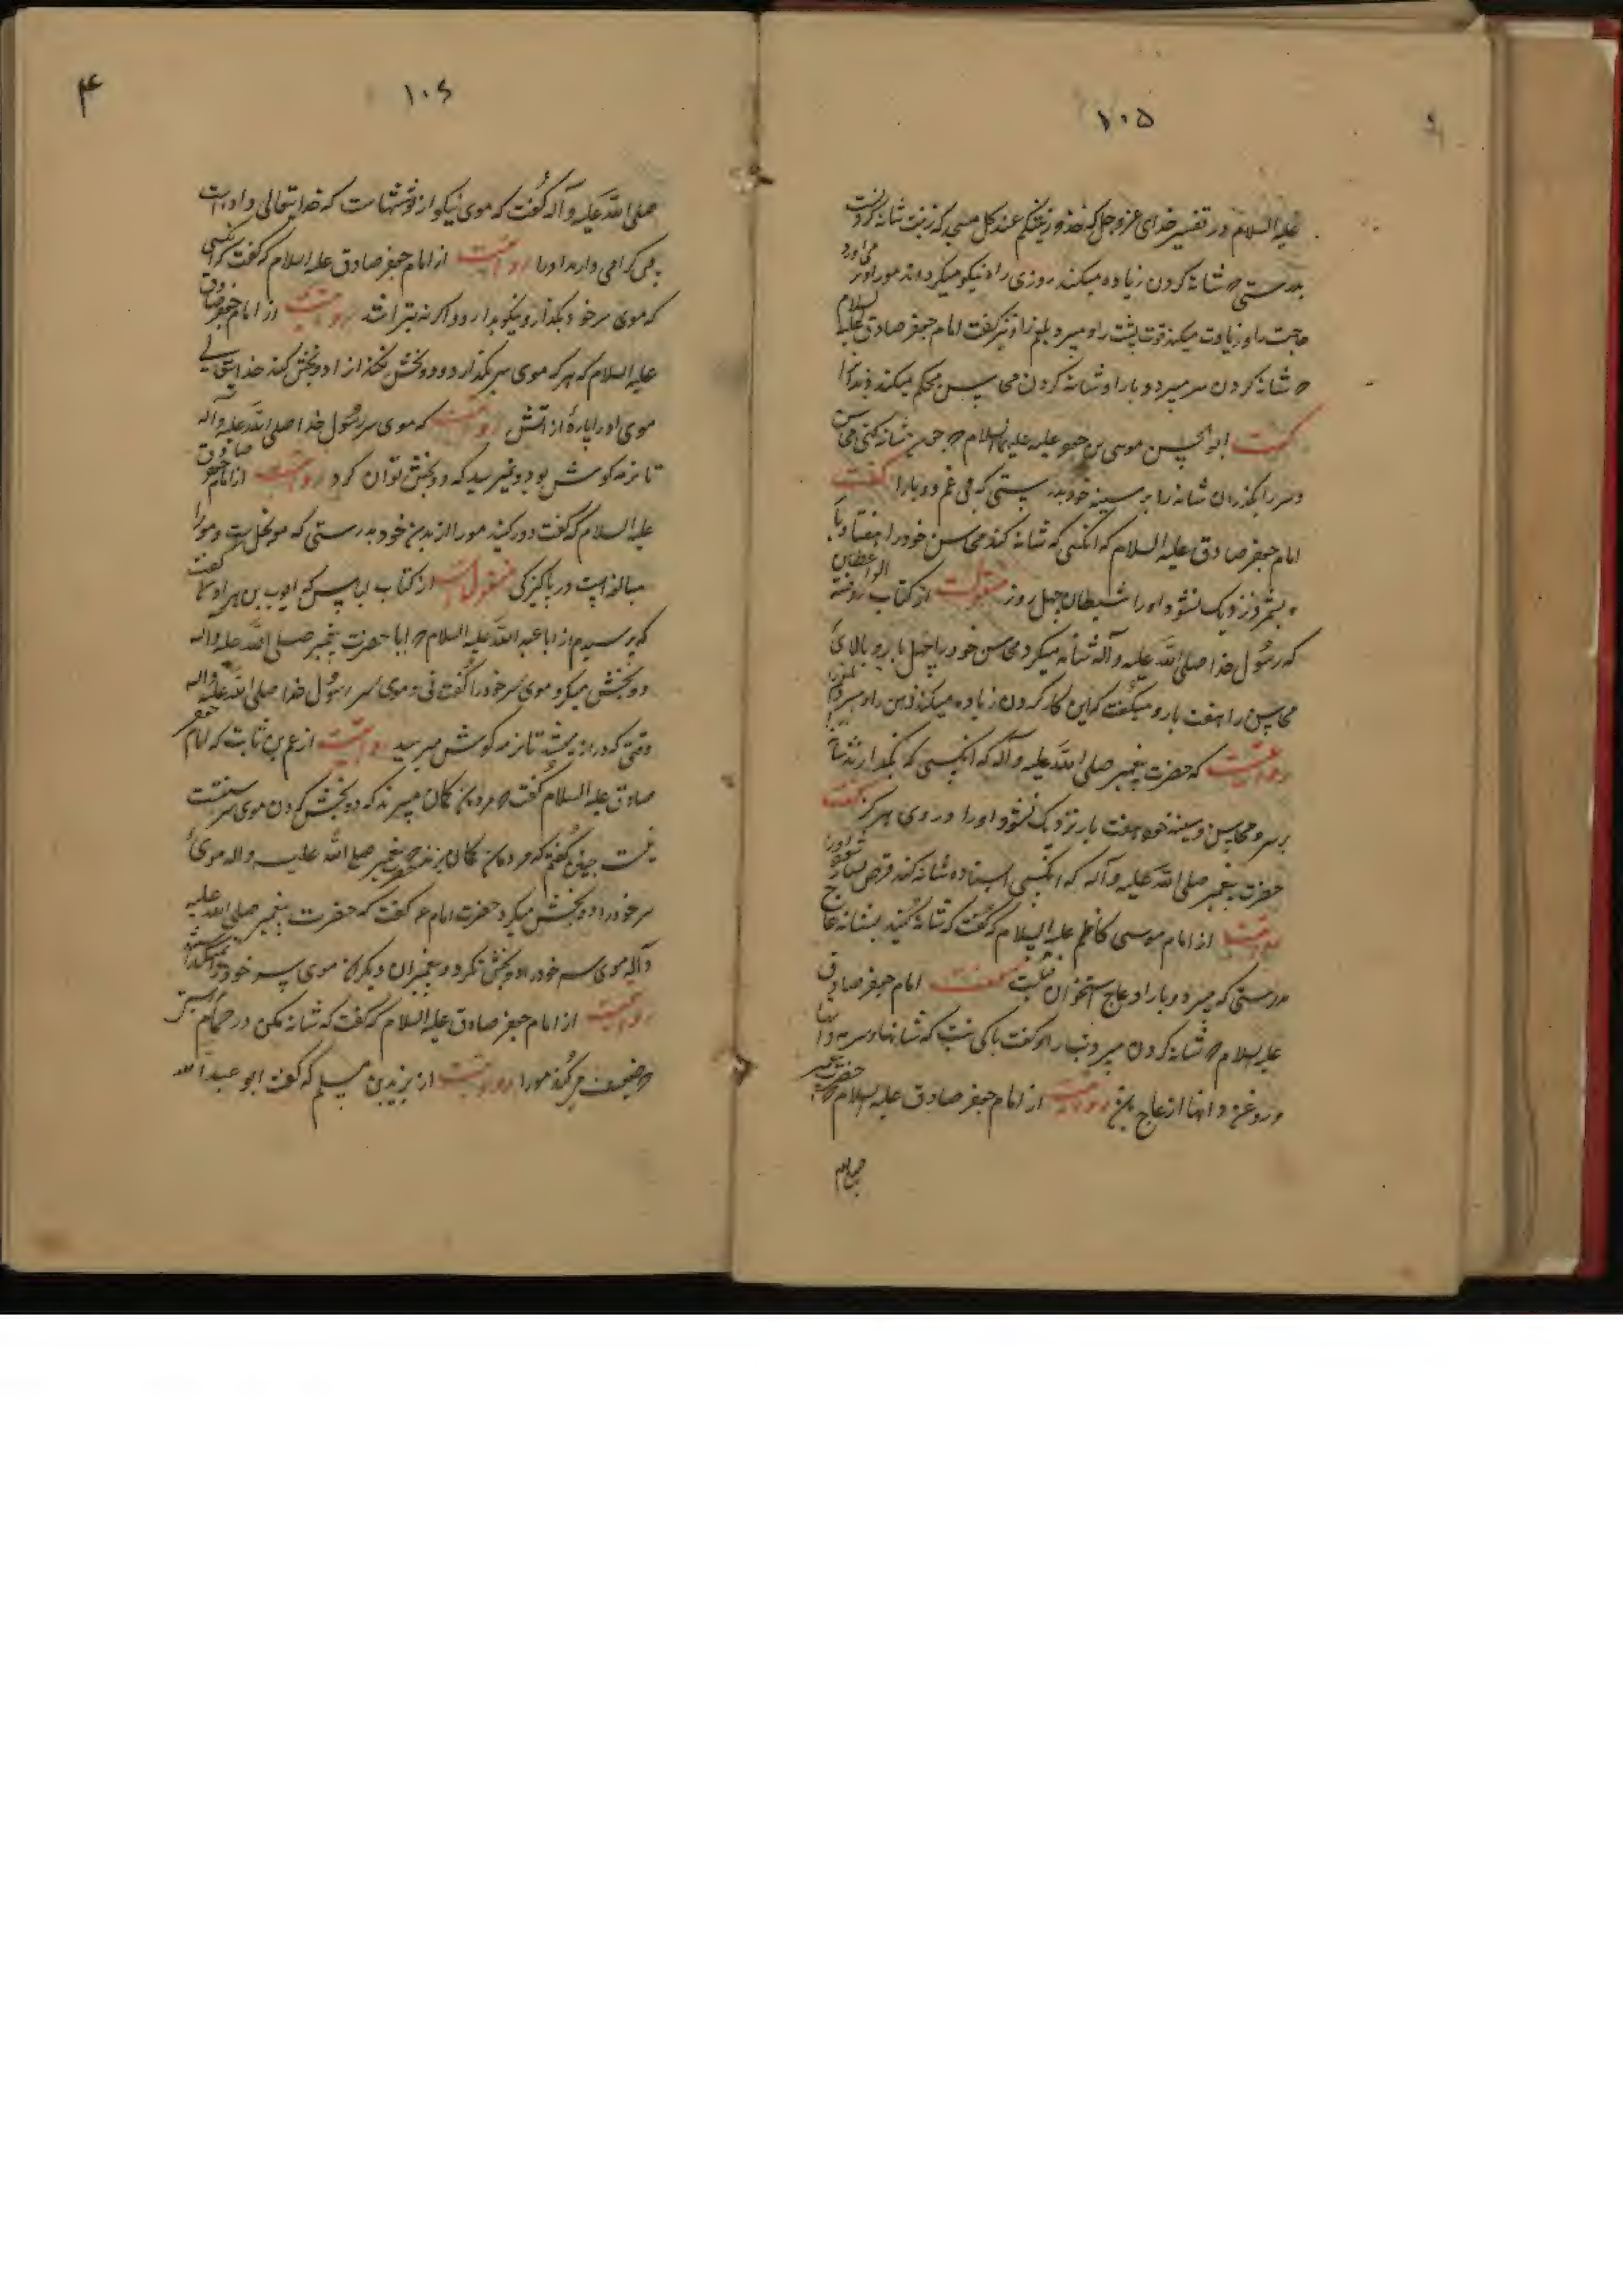 ۱۰۵
علیه السلام در تفسیر خدای عزوجل که خذوا زینتکم عند کل مسجد که زینت شانه کردنست
بدرستی که شانه کردن زیاده میکند روزی را و نیکو میکرداند مو را و بر می آورد
حاجت را و زیادت میکند قوت پشت را و میبرد بلغم را و نیز گفت امام جعفر صادق علیه السلام
که شانه کردن سر میبرد وبا را و شانه کردن محاسن محکم میکند دندانرا
گفت ابو الحسن موسی بن جعفر علیهما السلام که چون شانه کنی محاسن
و سر را بگذران شانه را بر سینه خود بدرستی که می برد غم و وبا را گفت
امام جعفر صادق علیه السلام که انکسی که شانه کند محاسن خود را هفتاد بار
و بشمرد نزدیک نشود او را شیطان چهل روز منقولست از کتاب روضة الواعظین
که رسول خدا صلی الله علیه و آله شانه میکرد محاسن خود را چهل بار و بالای
محاسن را هفت بار و میگفت که این کار کردن زیاده میکند ذهن را و میبرد بلغم را
روایتست که حضرت پیغمبر صلی الله علیه و آله که انکسی که بگذارند شانه
بر سر و محاسن و سینه خود هفت بار نزدیک نشود او را دردی هرگز گفت
حضرت پیغمبر صلی الله علیه و آله که انکسی ایستاده شانه کند قرض بسیار شود او را
روایتست از امام موسی کاظم علیه السلام که گفت که شانه کنید بشانه عاج
بدرستی که میبرد وبا را و عاج استخوان فیلست گفت امام جعفر صادق
علیه السلام که شانه کردن میبرد تب را و گفت باکی نیست که شانها و سرمه دانها
و روغن دانها از عاج بود روایتست از امام جعفر صادق علیه السلام که حضرت پیغمبر
صلی الله
۱۰۶
۴
صلی الله علیه و آله گفت که موی نیکو از پوششهاست که خدایتعالی داده است
پس گرامی دارید او را روایتست از امام جعفر صادق علیه السلام که گفت هر انکسی
که موی سر خود بگذارد نیکو بدارد و اگر نه بتراشد روایتست از امام جعفر صادق
علیه السلام که هر که موی سر بگذارد و دو بخش نکند از او دو بخش کند خدایتعالی
موی او را بپارهٔ از اتش روایتست که موی سر رسول خدا صلی الله علیه و آله
تا نرمه کوشش بود و نمیرسید که دو بخش توان کرد روایتست از امام جعفر صادق
علیه السلام که گفت دور کنید مو را از بدن خود بدرستی که مو نجس است و مو را
مبالغه است در پاکیزکی منقولست از کتاب لباس که ایوب بن هرون گفت
که پرسیدم از ابا عبد الله علیه السلام که ایا حضرت پیغمبر صلی الله علیه و اله
دو بخش میکرد موی سر خود را گفت نی و موی سر رسول خدا صلی الله علیه و اله
وقتی که دراز میشد تا نرمه کوش میرسید روایتست از عمرو بن ثابت که امام جعفر
صادق علیه السلام گفت که مردمان کمان میبرند که دو بخش کردن موی سر سنتست
نیست چنین گفتم که مردمان کمان میبرند که حضرت پیغمبر صلی الله علیه و اله موی
سر خود را دو بخش میکرد حضرت امام ع گفت که حضرت پیغمبر صلی الله علیه
و آله موی سر خود را دو بخش نکرد و پیغمبران دیکر نیز موی سر خود نمیگذاشتند
روایتست از امام جعفر صادق علیه السلام که گفت که شانه مکن در حمام
که ضعیف میکند مو را روایتست از یزید بن مسلم که گفت ابو عبد الله